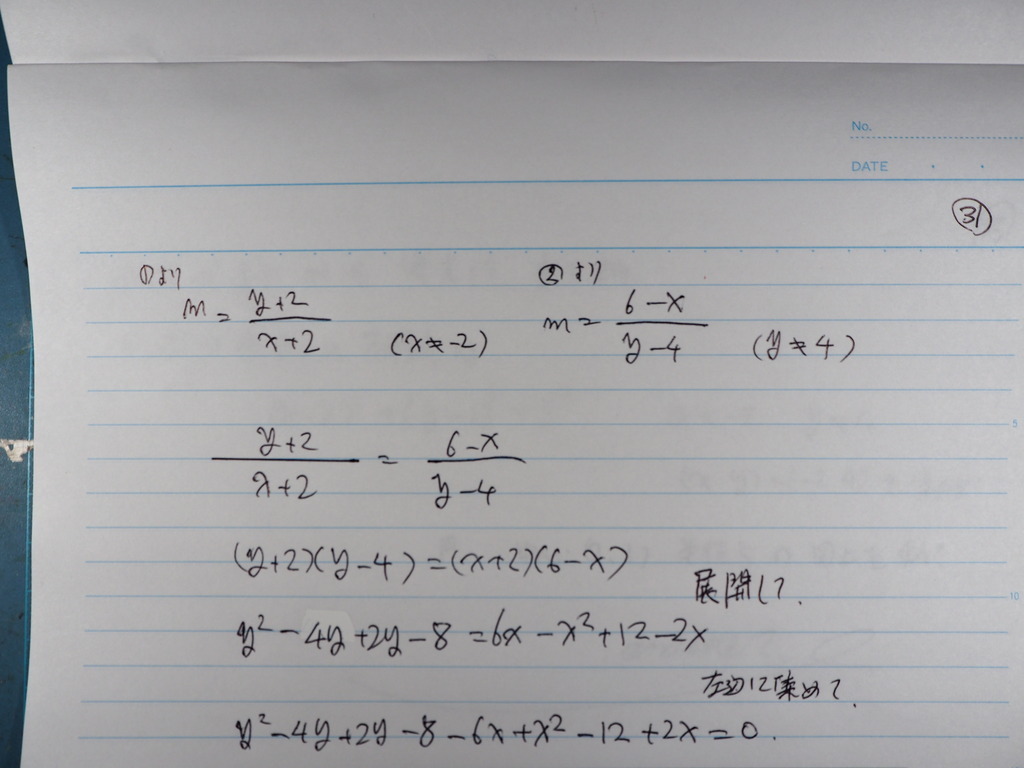 No.
DATE . .
㉛
①より ②より
m = \frac{y+2}{x+2} (x≠-2) m = \frac{6-x}{y-4} (y≠4)
5
\frac{y+2}{x+2} = \frac{6-x}{y-4}
(y+2)(y-4)=(x+2)(6-x)
展開して、
10
y²-4y+2y-8=6x-x²+12-2x
左辺に集めて、
y²-4y+2y-8-6x+x²-12+2x=0.